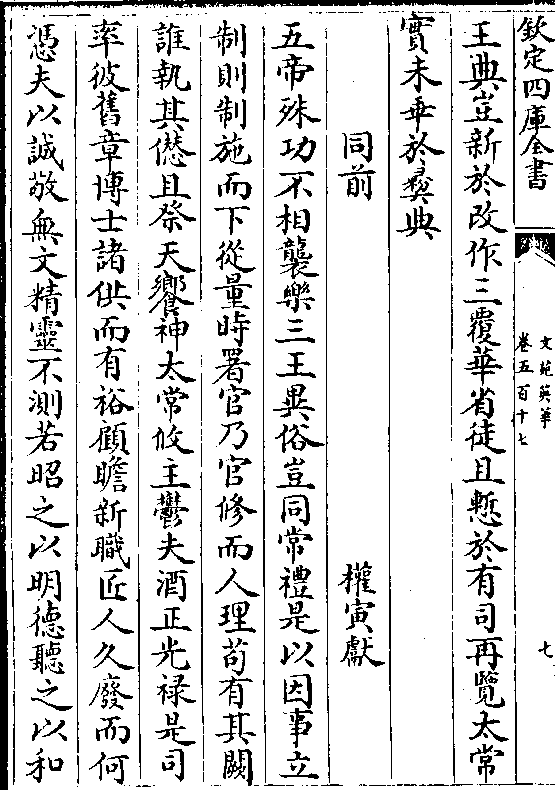 欽定四庫全書
文苑英華
卷五百十七
七
王典豈新於改作三覆華省徒且慙於有司再覽太常
實未乖於彛典
同前
權寅獻
五帝殊功不相襲樂三王異俗豈同常禮是以因事立
制則制施而下從量時署官乃官修而人理苟有其闕
誰執其僽且祭天饗神太常攸主鬱夫酒正光禄是司
率彼舊章博士諸供而有裕顧瞻新職匠人久廢而何
憑夫以誠敬無文精靈不測若昭之以明德聽之以和